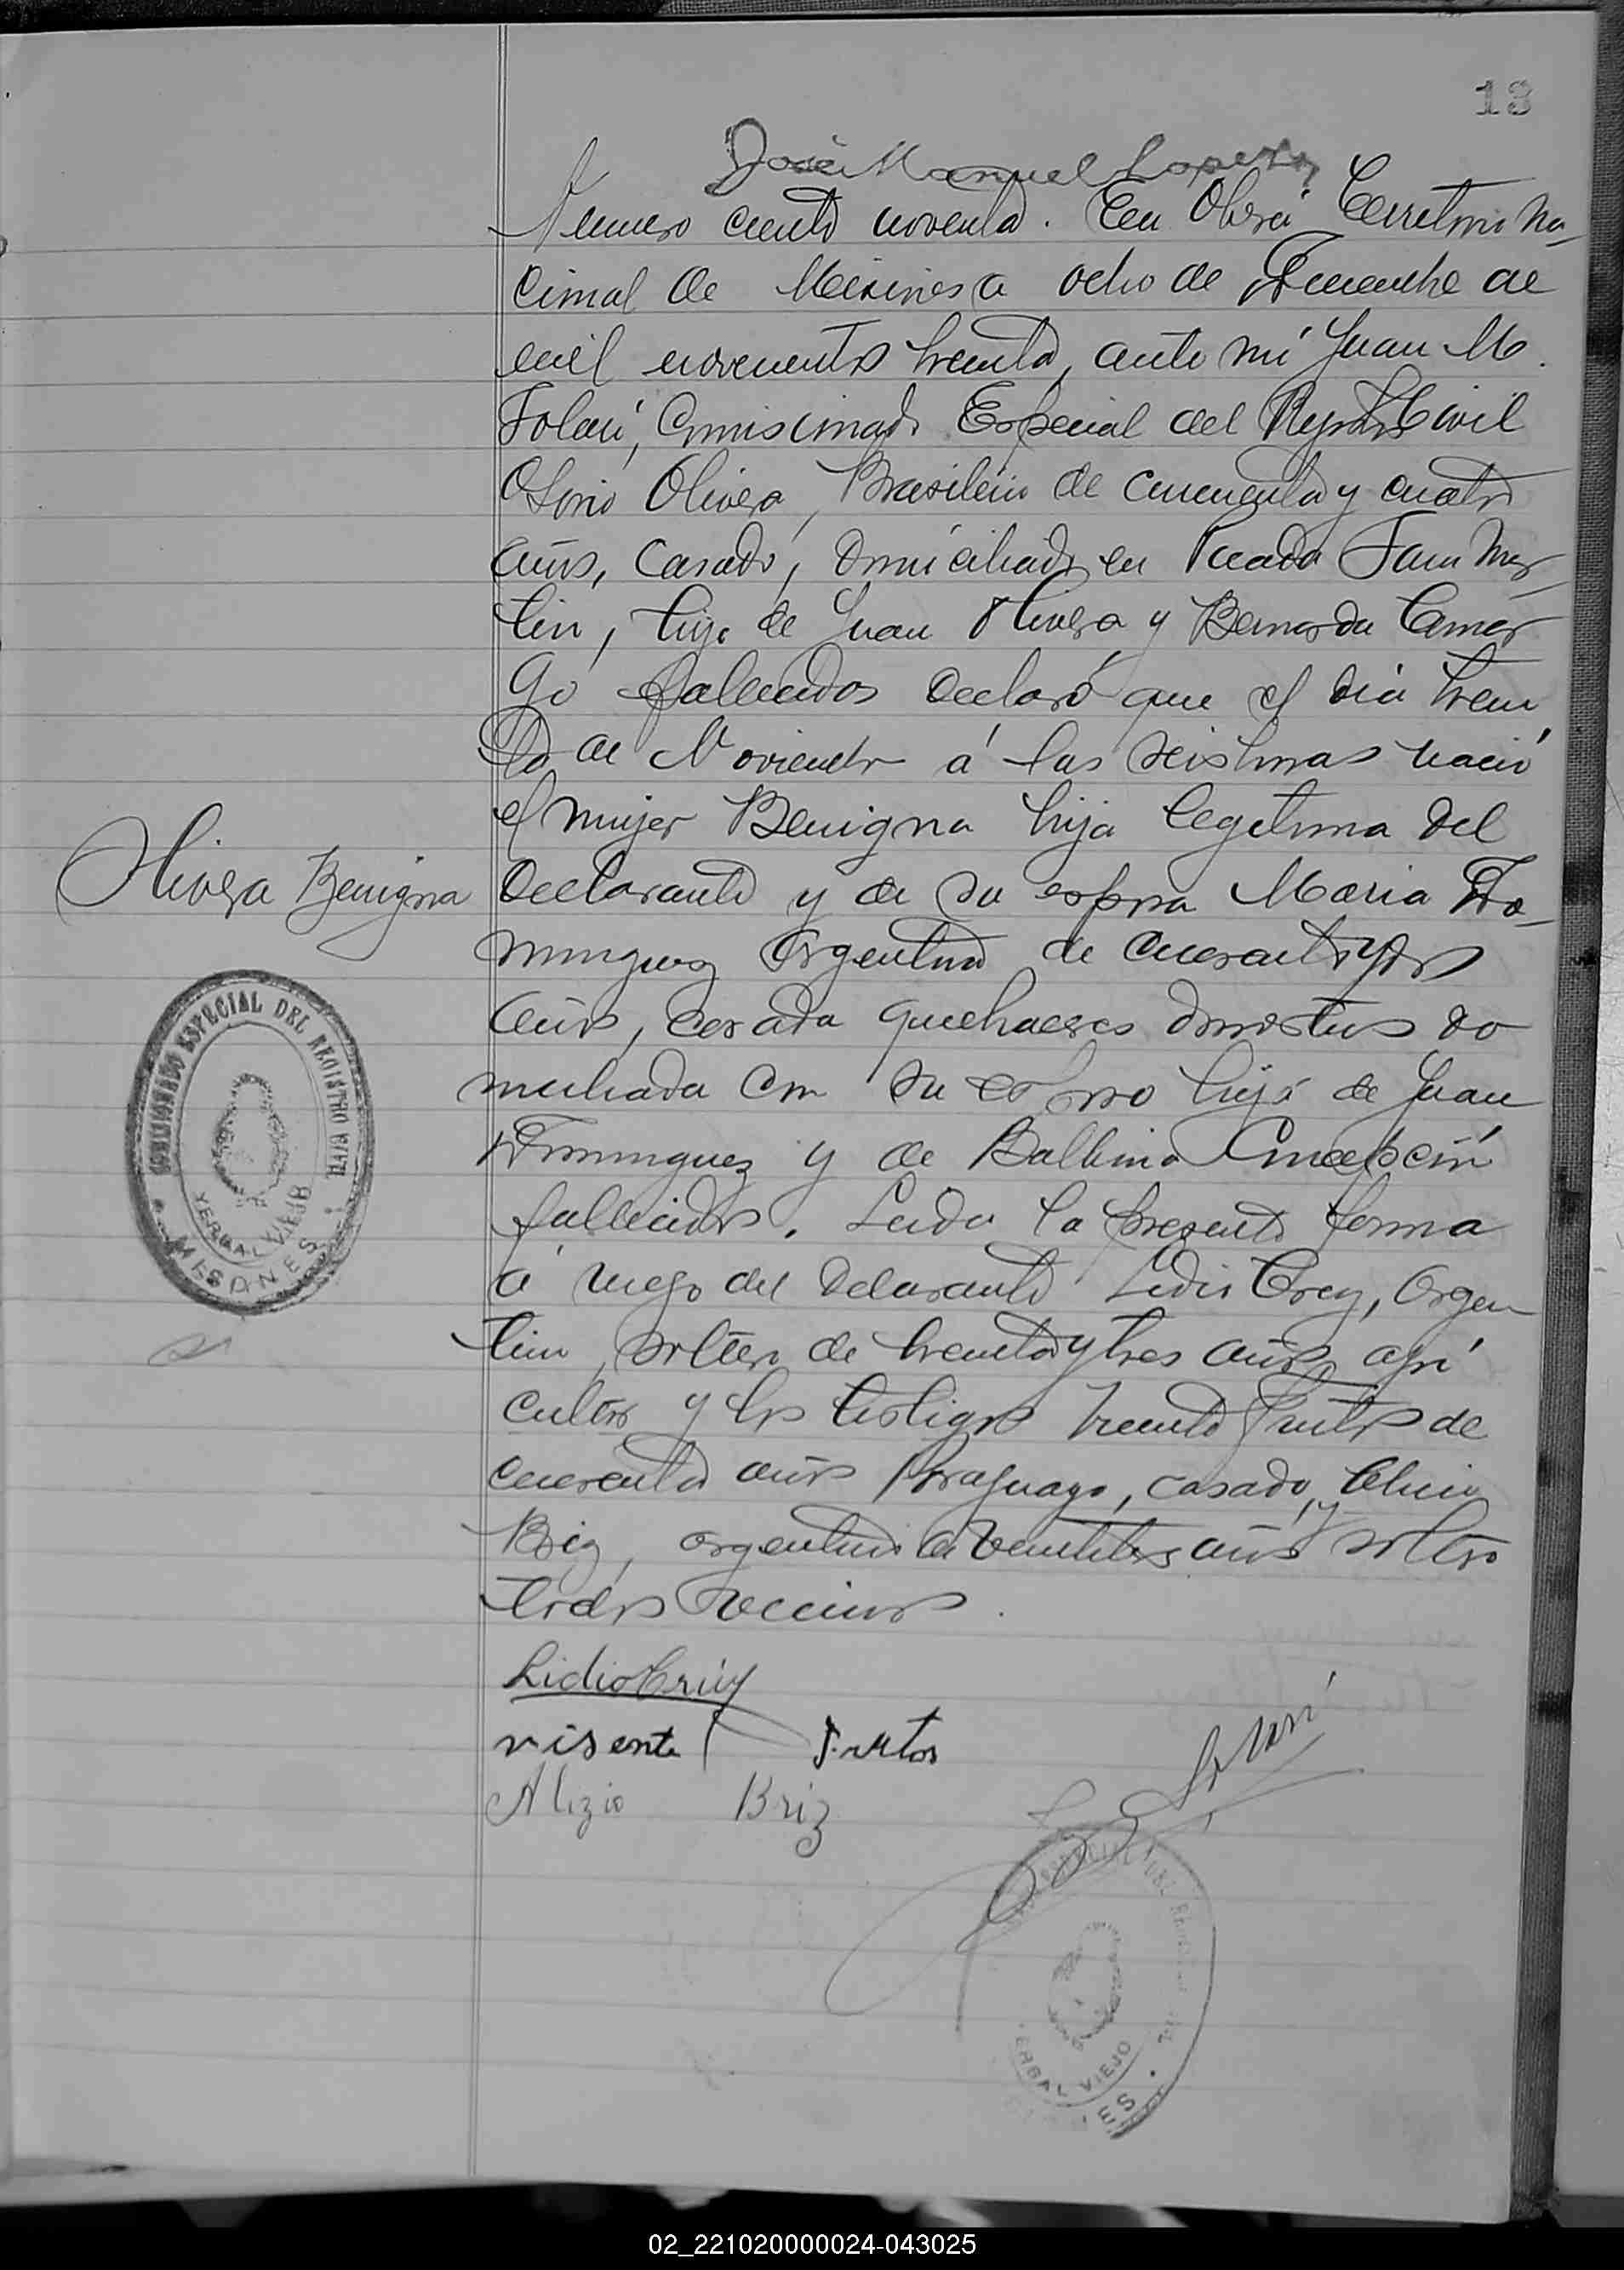 13
José Manuel Lopez
Numero ciento noventa. En Oberá Territorio Na-
cional de Misiones a ocho de Diciembre de
mil novecientos treinta, ante mí Juan M.
Solari, Comisionado Especial del Registro Civil
Olivera, Brasilero de cincuenta y cuatro
años, casado, domiciliado en Picada San Mar-
tin, hijo de Juan Olivera y Bernarda Camar-
go fallecidos declaró que el día trein
ta de Noviembre á las seis horas nació
el mujer Benigna hija legitima del
Olivera Benigna
declarante y de su esposa Maria Do-
minguez argentina de cuarentaydos
años, casada quehaceres domesticos do
miciliada con su esposo hija de Juan
Dominguez y de Balbina Concepción
fallecidos. Leida la presente firma
a ruego del declarante Lidio Argen
tino, soltero de treintaytres años, agri
cultor y los testigos Vicente Frutos de
cuarenta años Paraguayo, casado, y
Briz, argentino de veintitres años soltero
todos vecinos.
COMISIONADO ESPECIAL DEL REGISTRO CIVIL
YERBAL VIEJO
MISIONES
Lidio
visente Frutos
Alizio Briz
Solari
YERBAL VIEJO
02_221020000024-043025